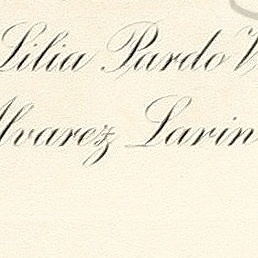 Lilia Pardo V
lvarez Larin